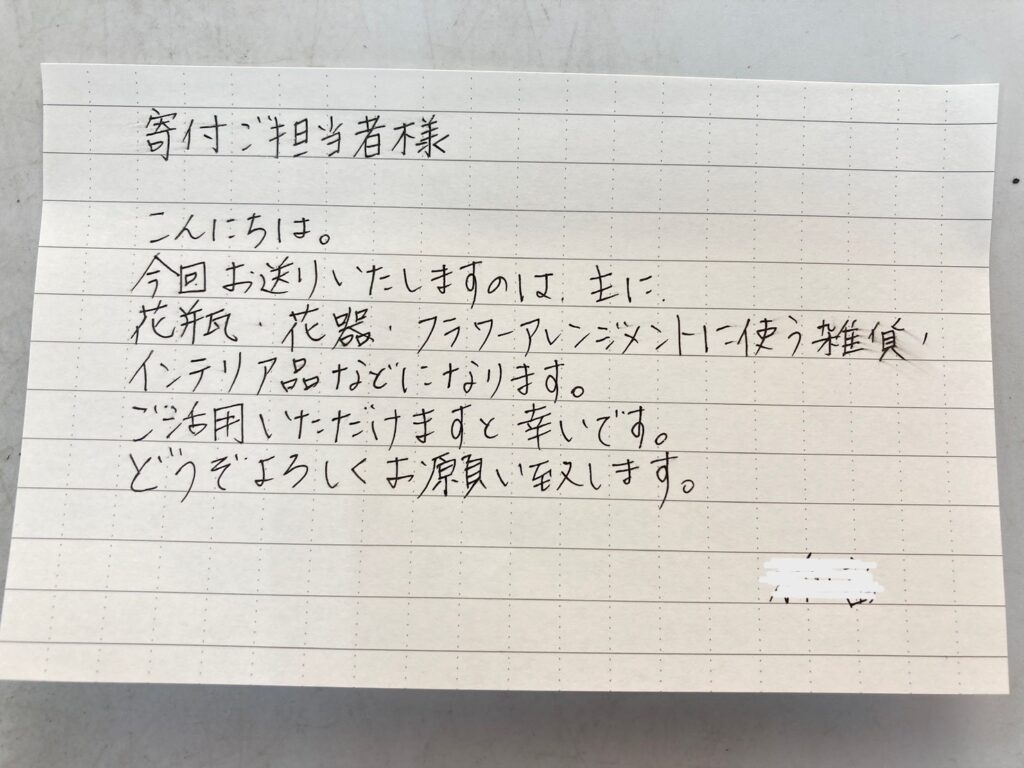 寄付ご担当者様
こんにちは。
今回お送りいたしますのは、主に、
花瓶・花器・フラワーアレンジメントに使う雑貨、
インテリア品などになります。
ご活用いただけますと幸いです。
どうぞよろしくお願い致します。